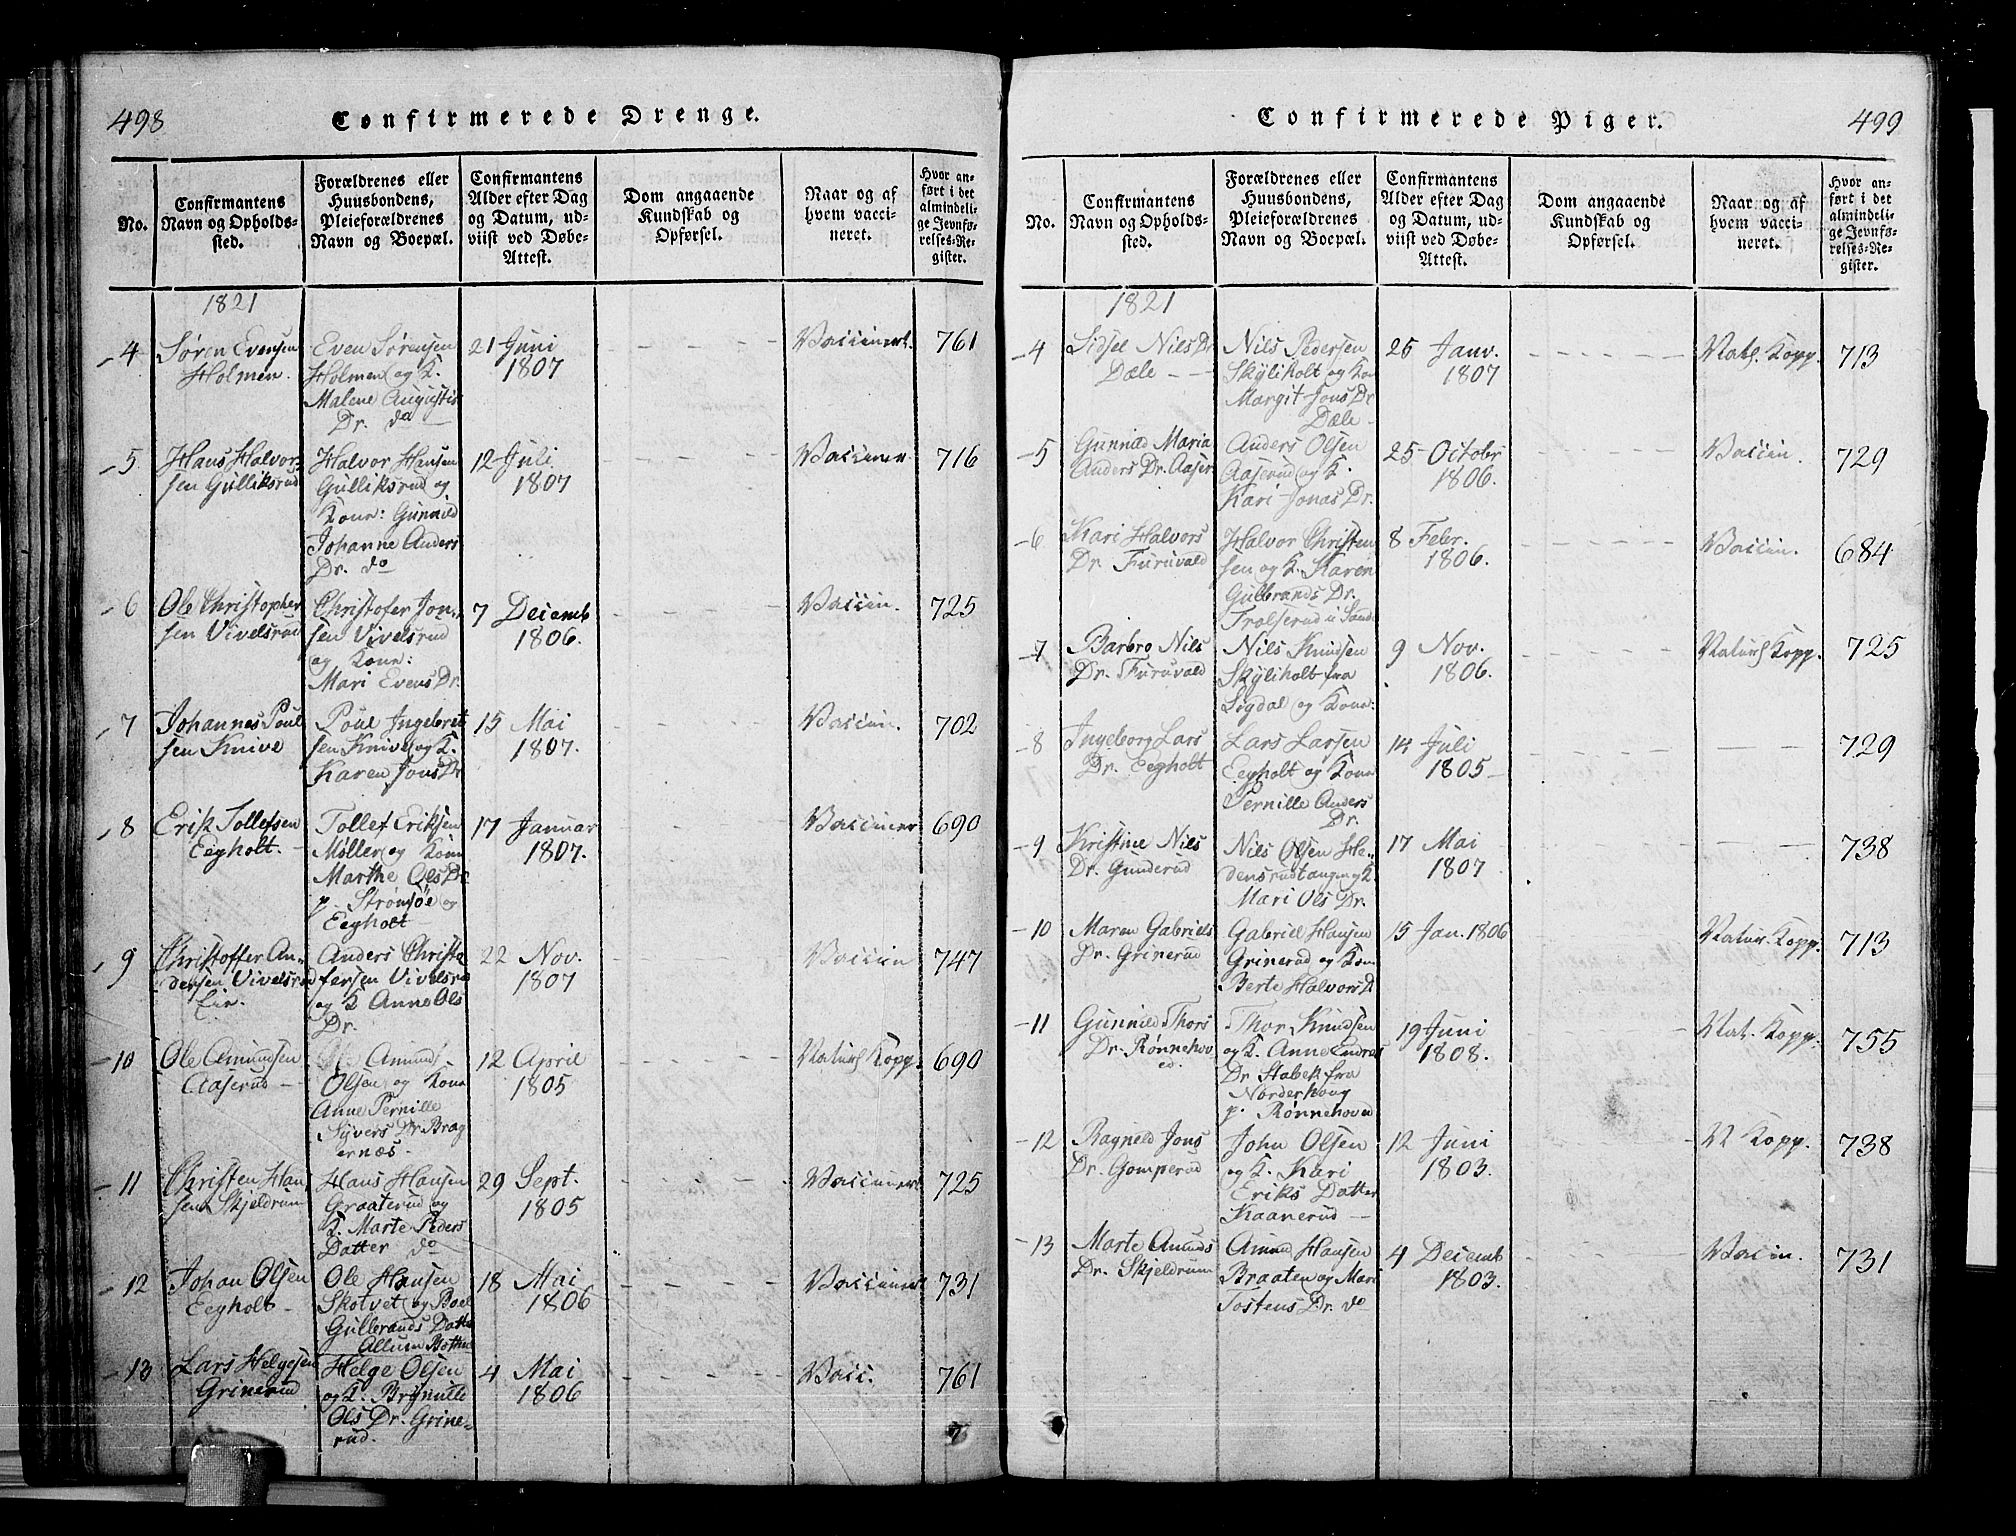 498
Confirmerede Drenge.
No.
Confirmantens
Navn og Opholds-
sted.
Forældrenes eller
Huusbondens,
Pleieforældrenes
Navn og Boepæl.
Confirmantens
Alder efter Dag
og Datum, ud-
viist ved Døbe-
Attest.
Dom angaaende
Kundskab og
Opførsel.
Naar og af
hvem vacci-
neret.
Hvor an-
ført i det
almindeli-
ge Jevnfø-
relses-Re-
gister.
1821
4
Søren Evensen
Holmen.
Even Sørensen
Holmen og K.
Malene Augustis
Dr. do
21 Juni
1807
Vaccinert.
761
5
Hans Halvor-
sen Gulliksrud
Halvor Hansen
Gulliksrud og
Kone: Gunnild
Johanne Anders
Dr. do
12 Juli
1807
Vacciner
716
6
Ole Christopher
sen Vivelsrud
Christofer Jon-
sen Vivelsrud
og Kone:
Mari Evens Dr.
7 Decemb
1806.
Vaccin.
725
7
Johannes Poul
sen Knive
Poul Ingebret
sen Knive og K.
Karen Jons Dr
15 Mai
1807.
Vaccin.
702
8
Erik Tollefsen
Eegholt.
Tollef Eriksen
Møller og Kone
Marthe Ols Dr
p. Strømsøe og
Eegholt
17 Januar
1807.
Vacciner
690
9
Christoffer An-
dersen Vivelsrud
Eie.
Anders Christo
fersen Vivelsrud
og K Anne Ols
Dr.
22 Nov.
1807
Vaccin
747
10
Ole Amundsen
Aaserud
Amund
Olsen og Kone
Anne Pernille
Syvers Dr Brag
ernæs.
12 April
1805
Naturl Kopp.
690
11
Christen Han
sen Skjeldrum
Hans Hansen
Graaterud og
K. Marte Peders
Datter do
29 Sept.
1805
Vaccinert
725
12
Johan Olsen
Eegholt
Ole Hansen
Skotvet og Boel
Gulbrands Datter
Allum
18 Mai
1806
Vaccinert
731
13
Lars Helgesen
Grinerud
Helge Olsen
og K. Brynille
Ols Dr. Grine-
rud.
4 Mai
1806
Vacc.
761
499
Confirmerede Piger.
No.
Confirmantens
Navn og Opholds-
sted.
Forældrenes eller
Huusbondens,
Pleieforældrenes
Navn og Boepæl.
Confirmantens
Alder efter Dag
og Datum, ud-
viist ved Døbe-
Attest.
Dom angaaende
Kundskab og
Opførsel.
Naar og af
hvem vacci-
neret.
Hvor an-
ført i det
almindeli-
ge Jevnfø-
relses-Re-
gister.
1821
4
Sidsel Nils Dr
Dæle
Nils Pedersen
Skyliholt og Kone
Margit Jons Dr
Dæle
25 Janv.
1807
Natl. Kopp.
713
5
Gunnild Maria
Anders Dr. Aaser
Anders Olsen
Aaserud og K.
Kari Jonas Dr.
25 Octobr
1806.
Vaccin.
729
6
Kari Halvors
Dr. Furuvald
Halvor Christen
sen og K. Karen
Gulbrands Dr.
Trolserud i Sand
8 Febr.
1806.
Vaccin.
684
7
Barbro Nils
Dr. Furuvald
Nils Knudsen
Skyliholt fra
Sigdal og Kone:
9 Nov.
1806.
Naturl Kopp.
725
8
Ingeborg Lars
Dr. Eegholt
Lars Larsen
Eegholt og Kone
Pernille Anders
Dr.
14 Juli
1805
729
9
Kristine Nils
Dr. Gunderud
Nils Olsen He-
densrudtangen og K.
Mari Ols Dr.
17 Mai
1807
738
10
Maren Gabriels
Dr. Grinerud
Gabriel Hansen
Grinerud og Kon.
Berte Halvors D
15 Jan. 1806
Natur. Kopp.
713
11
Gunnild Thors
Dr. Rønnehov
ed.
Thor Knudsen
og K. Anne Endres
Dr Stabek fra
Norderhoug
p. Rønnehoved
19 Juni
1808.
Nat. Kopp.
755
12
Ragnild Jons
Dr. Gomperud
John Olsen
og K. Kari
Eriks Datter
Kaanerud
12 Juni
1803.
N Kopp.
738
13
Marte Amunds
Dr. Skjeldrum
Amund Hansen
Braaten og Mari
Tostens Dr. do
4 Decemb
1803.
Vaccin.
731